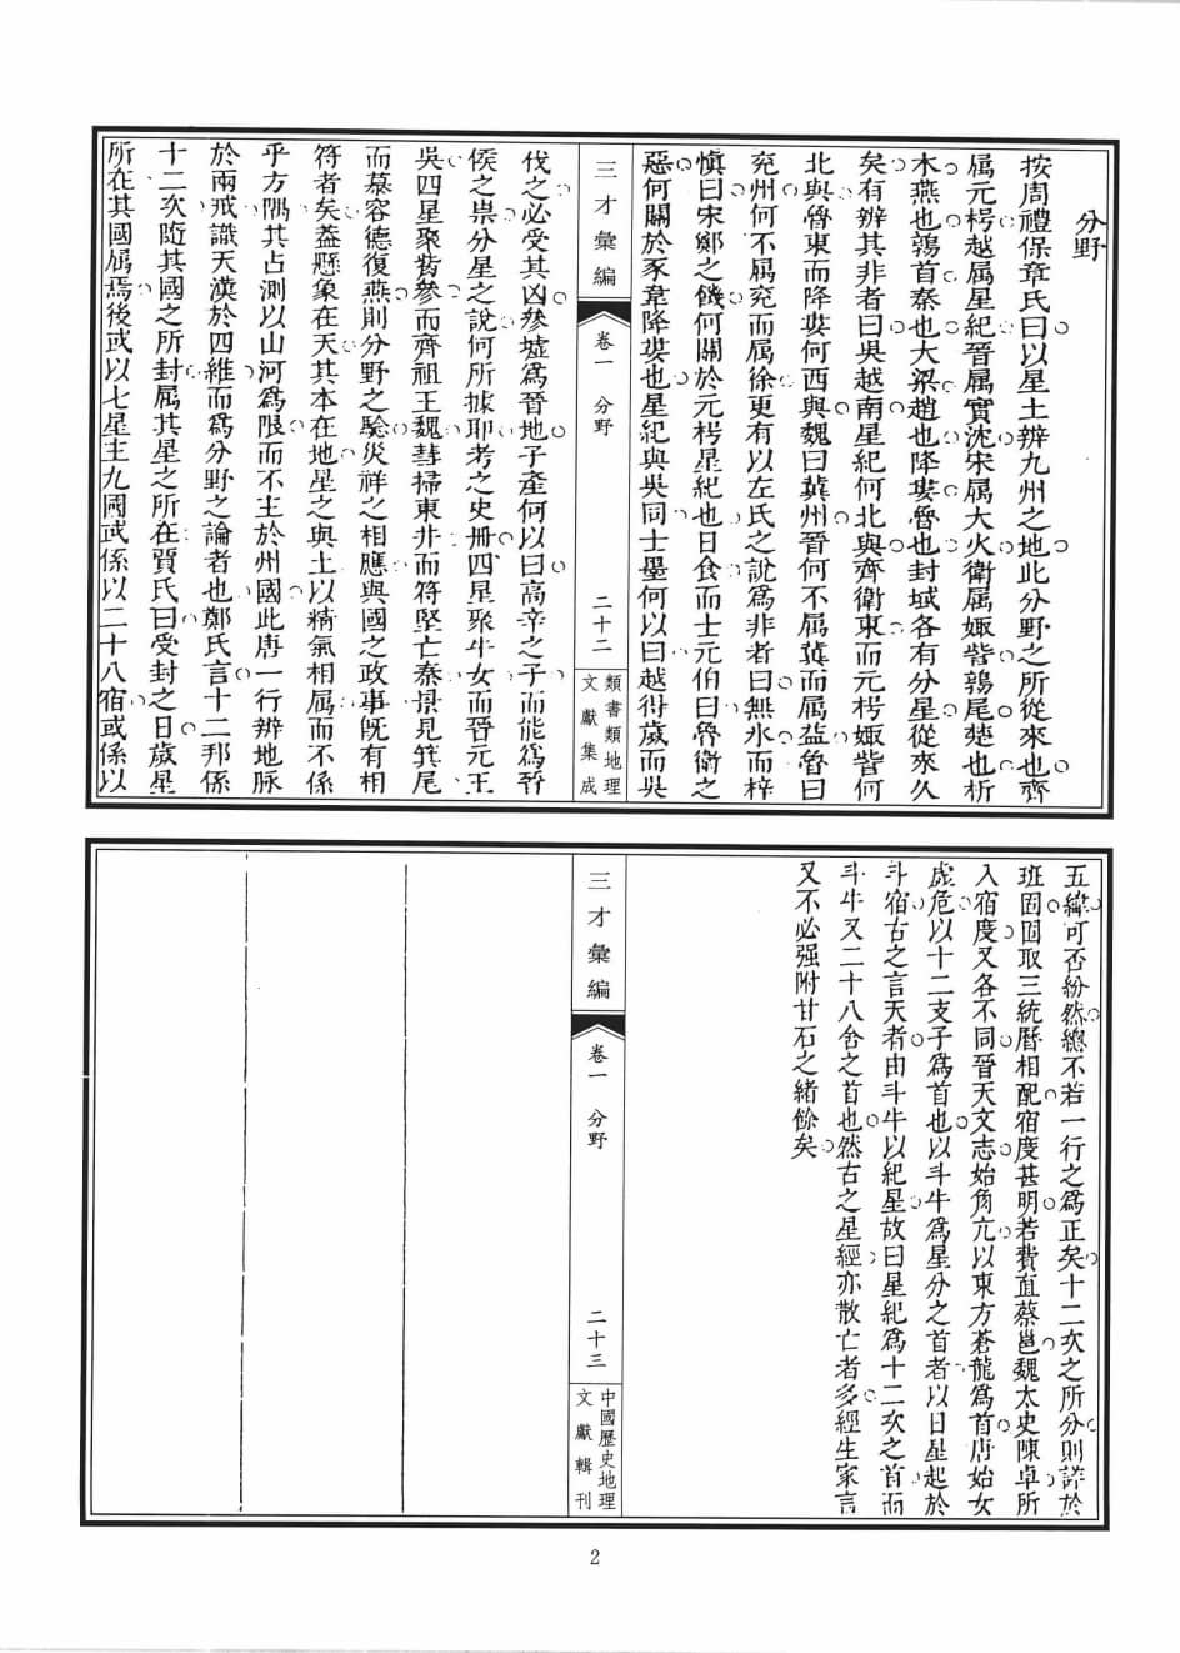 分野
按周禮保章氏曰以星土辨九州之地此分野之所從來也齊
屬元枵越屬星紀晉屬實沈宋屬大火衛屬娵訾鶉尾楚也析
木燕也鶉首秦也大梁趙也降婁魯也封域各有分星從來久
矣有辨其非者曰吳越南星紀何北與齊衛東而元枵娵訾何
北與魯東而降婁何西與魏曰冀州晉何不屬冀而屬益魯曰
兗州何不屬兗而屬徐更有以左氏之說為非者曰無氷而梓
慎曰宋鄭之饑何關於元枵星紀也日食而士元伯曰魯衛之
惡何關於豕韋降婁也星紀與吳同士墨何以曰越得歲而吳
三才彙編
卷一 分野
二十二
類書類地理
文獻集成
伐之必受其凶參墟為晉地子產何以曰高辛之子而能為晉
侯之祟分星之說何所據耶考之史冊四星聚牛女而晉元王
吳四星聚觜參而齊祖王魏彗掃東井而符堅亡秦景見箕尾
而慕容德復燕則分野之驗災祥之相應與國之政事既有相
符者矣蓋懸象在天其本在地星之與土以精氣相屬而不係
乎方隅其占測以山河為限而不主於州國此唐一行辨地脉
於兩戒識天漢於四維而為分野之論者也鄭氏言十二邦係
十二次隨其國之所封屬其星之所在賈氏曰受封之日歲星
所在其國屬焉後或以七星主九國或係以二十八宿或係以
五緯可否紛然總不若一行之為正矣十二次之所分則詳於
班固固取三統曆相配宿度甚明若費直蔡邕魏太史陳卓所
入宿度又各不同晉天文志始角亢以東方蒼龍為首唐始女
虛危以十二支子為首也以斗牛為星分之首者以日星起於
斗宿古之言天者由斗牛以紀星故曰星紀為十二次之首而
斗牛又二十八舍之首也然古之星經亦散亡者多經生家言
又不必强附甘石之緒餘矣
三才彙編
卷一 分野
二十三
中國歷史地理
文獻輯刊
2